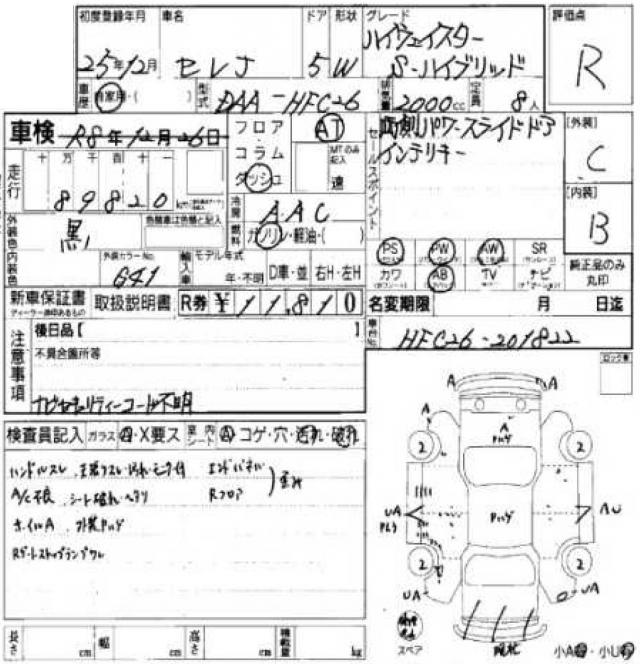 初度登録年月 車名 ドア 形状 グレード 評価点
25年12月 セレナ 5 W ハイウェイスター
S-ハイブリッド R
車歴 自家用・( ) 型式 DAA-HFC26 排気量 2000cc 定員 8人
車検 R8年12月26日 フロア AT
コラム MTのみ記入
ダッシュ 速
セールスポイント 両側パワースライドドア
インテリキー
[外装]
C
[内装]
B
走行 十 万 千 百 十 一
89820 km
冷房 AAC
燃料 ガソリン・軽油・( )
外装色 黒 色替車は色替と記入
内装色 外装カラーNo. G41
輸入車 モデル年式 年・不明 D車・並 右H・左H
PS PW AW SR
カワ AB TV ナビ
純正品のみ丸印
新車保証書 取扱説明書 R券 ¥11,810
ディーラー捺印あるもの
名変期限 月 日迄
車台No. HFC26-201822
注意事項
後日品【 】
不具合箇所等
ナビセキュリティーコード不明
検査員記入 ガラス A・X要ス 室内シート A コゲ・穴・汚れ・破れ
ハンドルスレ
A/C不良 シート破れ・ヘタリ
Rフロア
ホイルA 外装Pハゲ
A A
A A
Pハゲ
2 2
UA Pハゲ AU
2 2
UA UA
スペア 小A・小U
長さ cm 幅 cm 高さ cm 積載量 kg